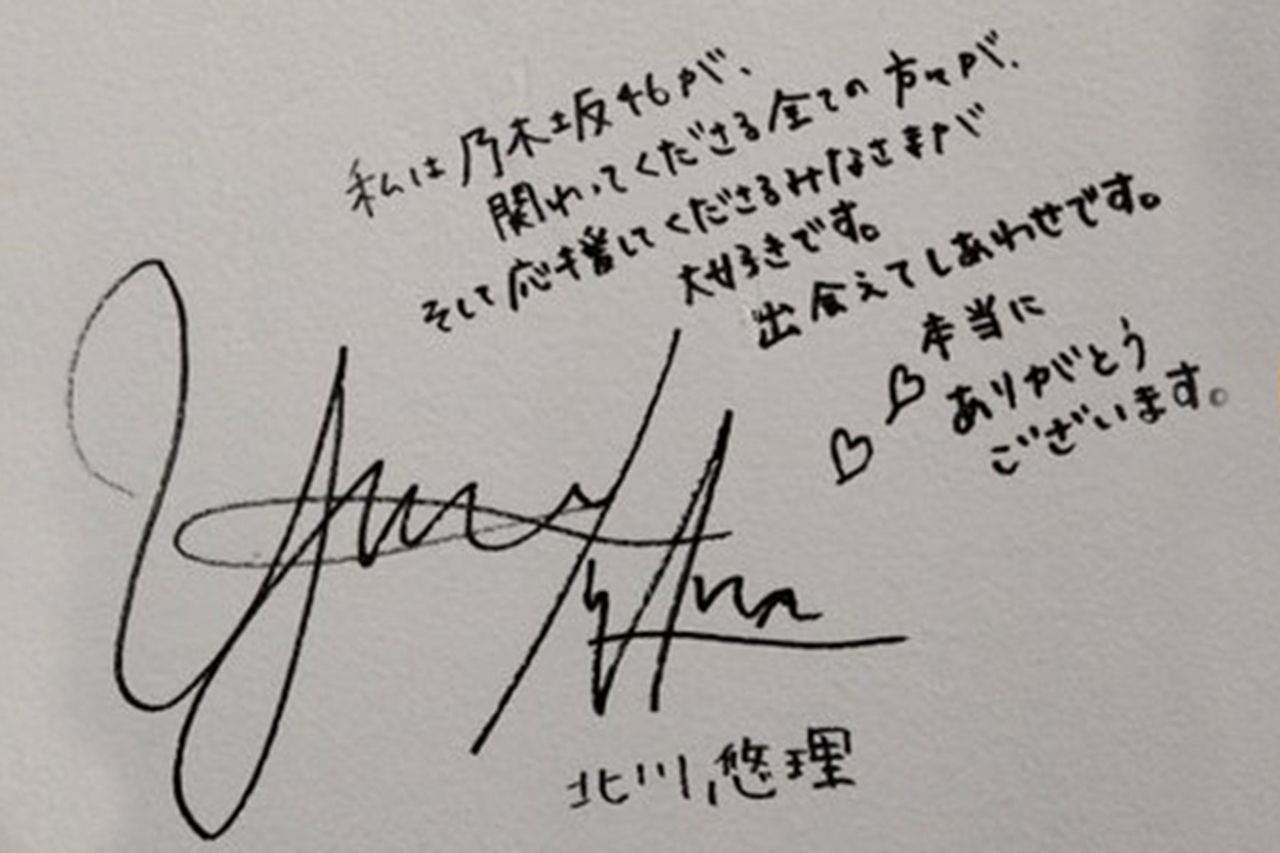 私は乃木坂46が、
関わってくださる全ての方々が、
そして応援してくださるみなさまが
大好きです。
出会えてしあわせです。
本当に
ありがとう
ございます。
北川悠理